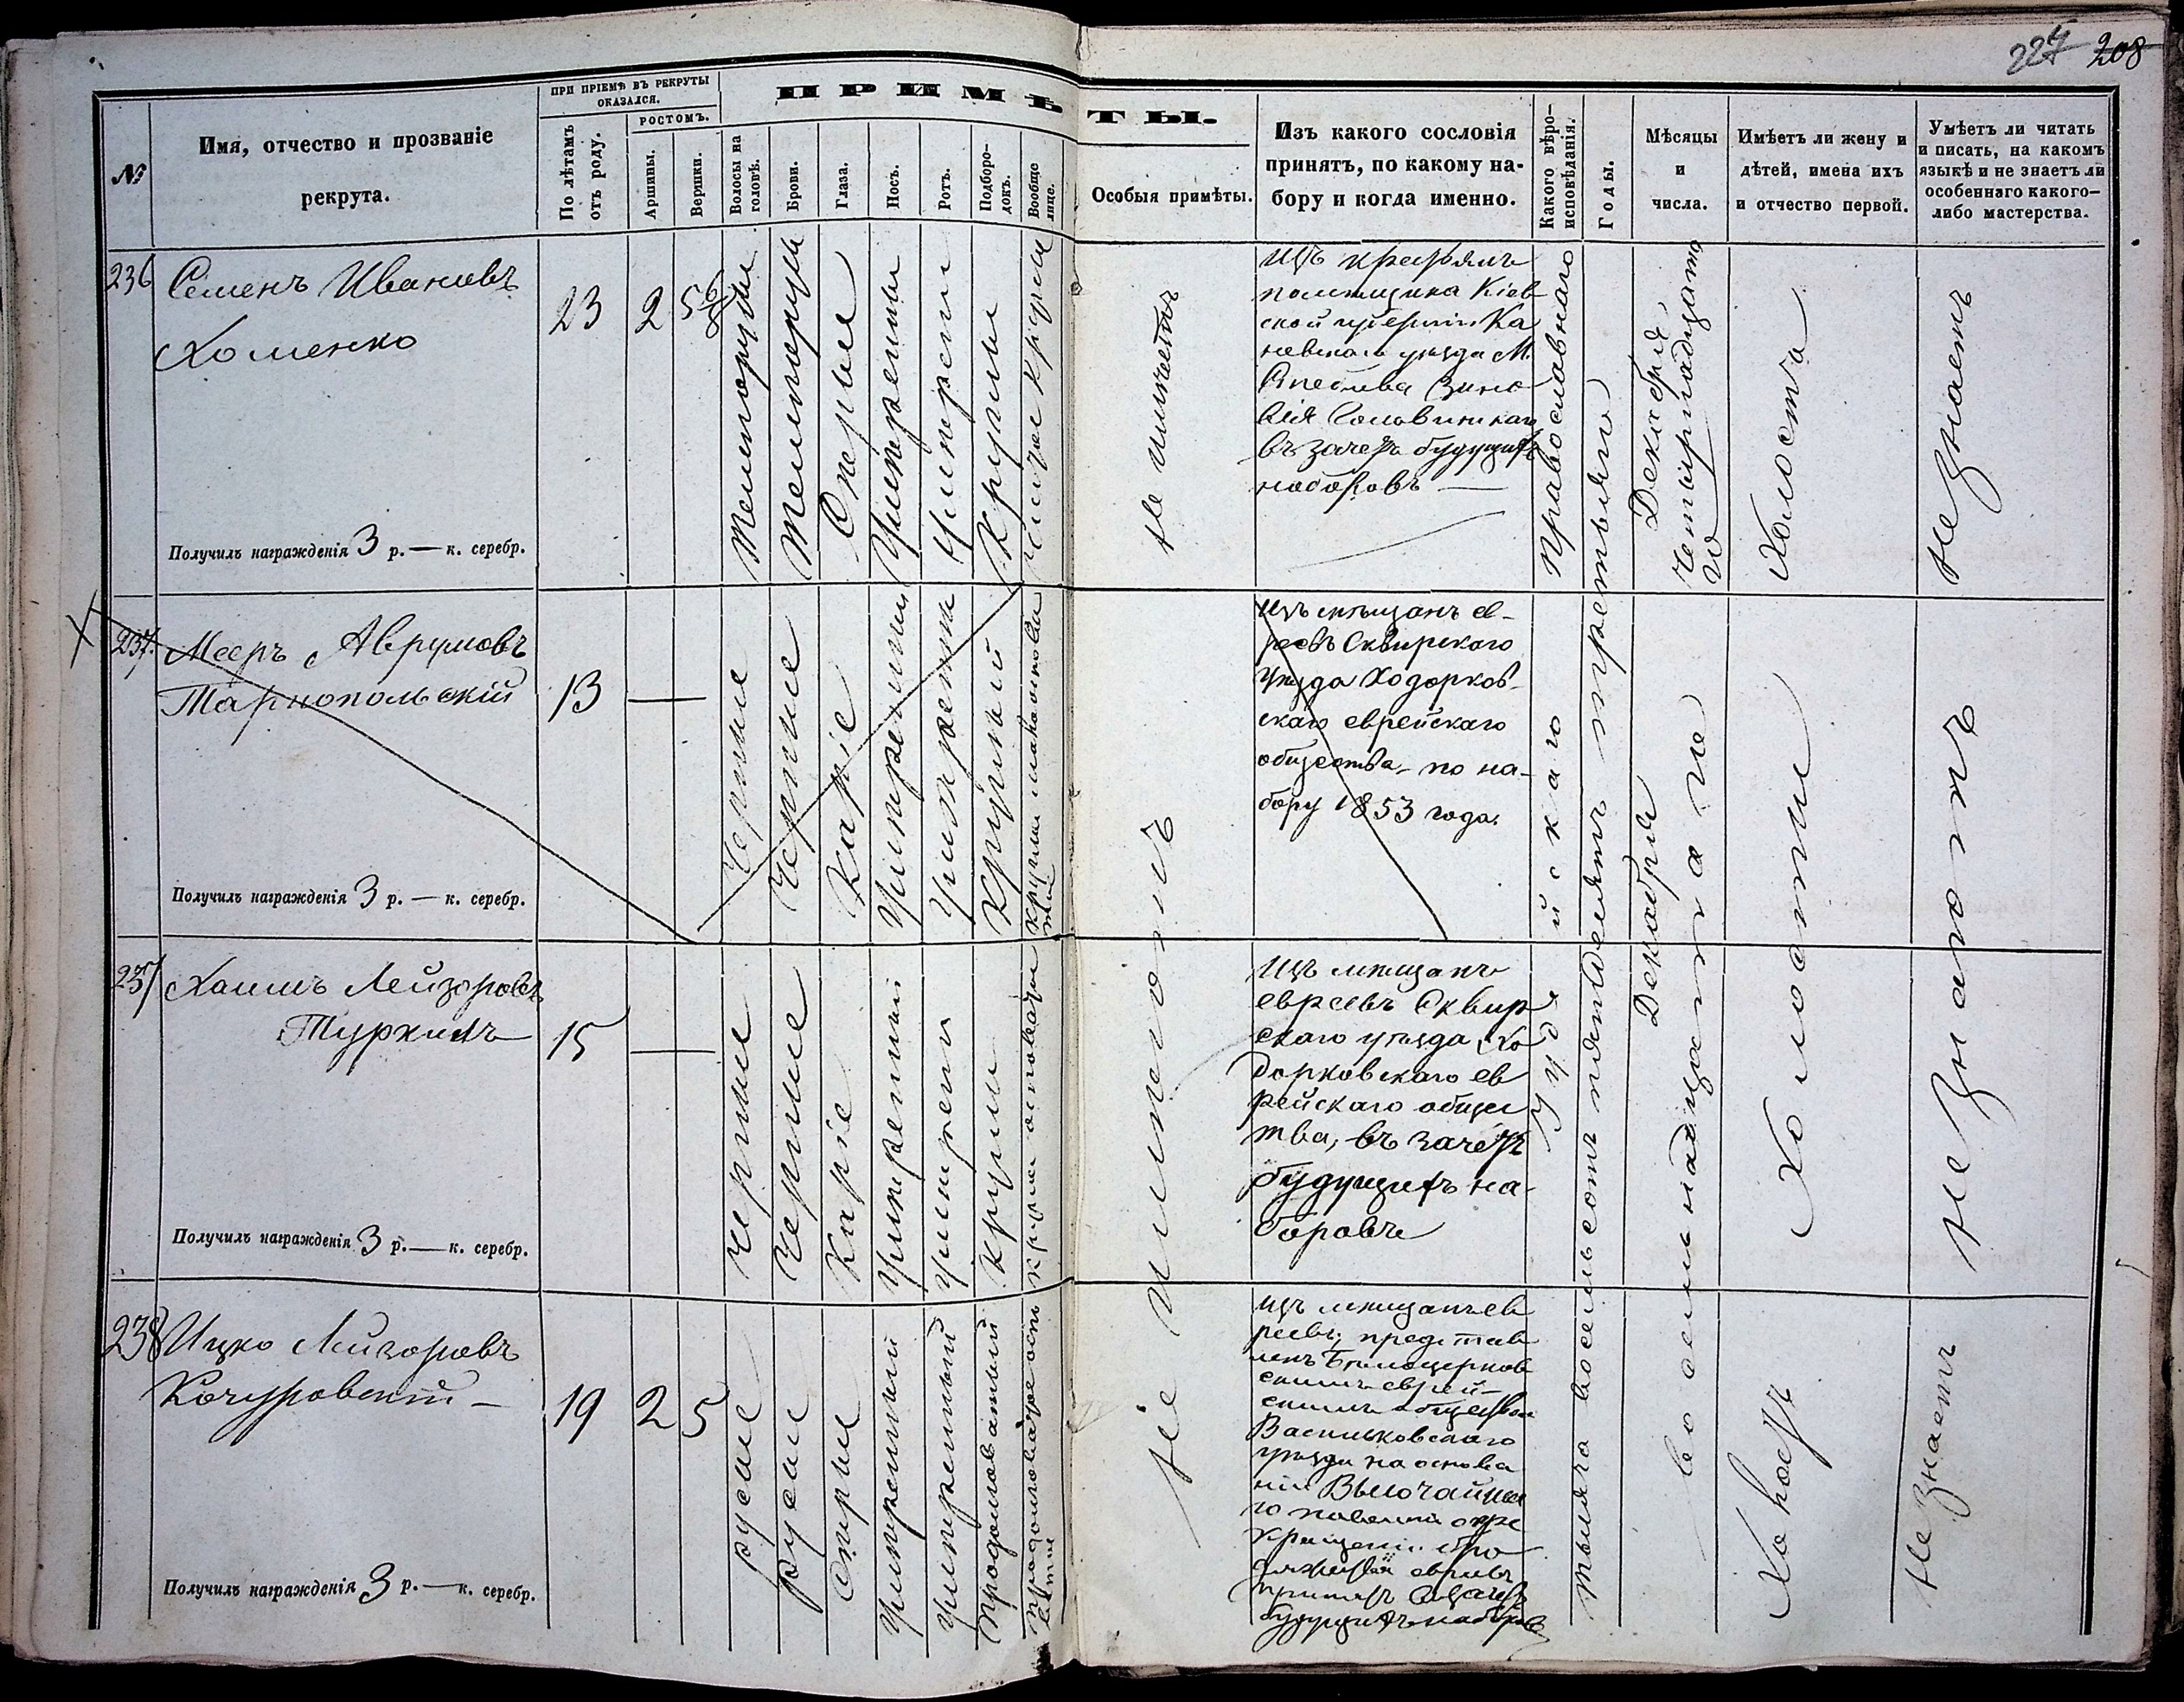 227 208
№
Имя, отчество и прозваніе
рекрута.
ПРИ ПРІЕМѢ ВЪ РЕКРУТЫ
ОКАЗАЛСЯ.
По лѣтамъ
отъ роду.
РОСТОМЪ.
Аршины.
Вершки.
ПРИМѢТЫ.
Волосы на
головѣ.
Брови.
Глаза.
Носъ.
Ротъ.
Подборо-
докъ.
Вообще
лице.
Особыя примѣты.
Изъ какого сословія
принятъ, по какому на-
бору и когда именно.
Какого вѣро-
исповѣданія.
Годы.
Мѣсяцы
и
числа.
Имѣетъ ли жену и
дѣтей, имена ихъ
и отчество первой.
Умѣетъ ли читать
и писать, на какомъ
языкѣ и не знаетъ ли
особеннаго какого-
либо мастерства.
236
Семенъ Ивановъ
Хоменко
Получилъ награжденія 3 р. — к. серебр.
23
2
5 6/8
Темнорусые
Темнорусые
Сѣрые
Умѣренный
Умѣренный
Круглый
чистое круглое
Не имѣетъ
Изъ крестьянъ
помѣщика Кіев
ской губерніи Ка
невскаго уѣзда М.
Стеблева Зино
вія Головинскаго
въ зачетъ будущихъ
наборовъ —
Православнаго
Декабря
четырнадцатаго
Холостъ
Не знаетъ
237.
Мееръ Аврумовъ
Тарнопольскій
Получилъ награжденія 3 р. — к. серебр.
13
—
Черные
Черные
Каріе
Умѣренный
Умѣренный
Круглый
Изъ мѣщанъ ев-
реевъ Сквирскаго
уѣзда Ходорков-
скаго еврейскаго
общества по на-
бору 1853 года.
237
Хаимъ Лейзоровъ
Туркинъ
Получилъ награжденія 3 р. — к. серебр.
15
—
Черные
Черные
Каріе
Умѣренный
Умѣрен
Круглый
Не имѣютъ
Изъ мѣщанъ
евреевъ Сквир
скаго уѣзда Хо
дорковскаго ев
рейскаго общес
тва, въ зачетъ
будущихъ на-
боровъ
Іудейскаго
Тысяча восемьсотъ пятьдесятъ третьяго
Декабря
восемнадцатаго
Холосты
Не знаютъ
238
Ицко Лейзоровъ
Кочуровскій —
Получилъ награжденія 3 р. — к. серебр.
19
2
5
русые
русые
Сѣрые
Умѣренный
Умѣренный
Продолговатый
Изъ мѣщанъ ев
реевъ, представ
ленъ Бѣлоцерков
скимъ еврей-
скимъ обществом
Васильковскаго
уѣзда на основа
ніи Высочайшаго
будущихъ наборов
Холостъ
Не знаетъ